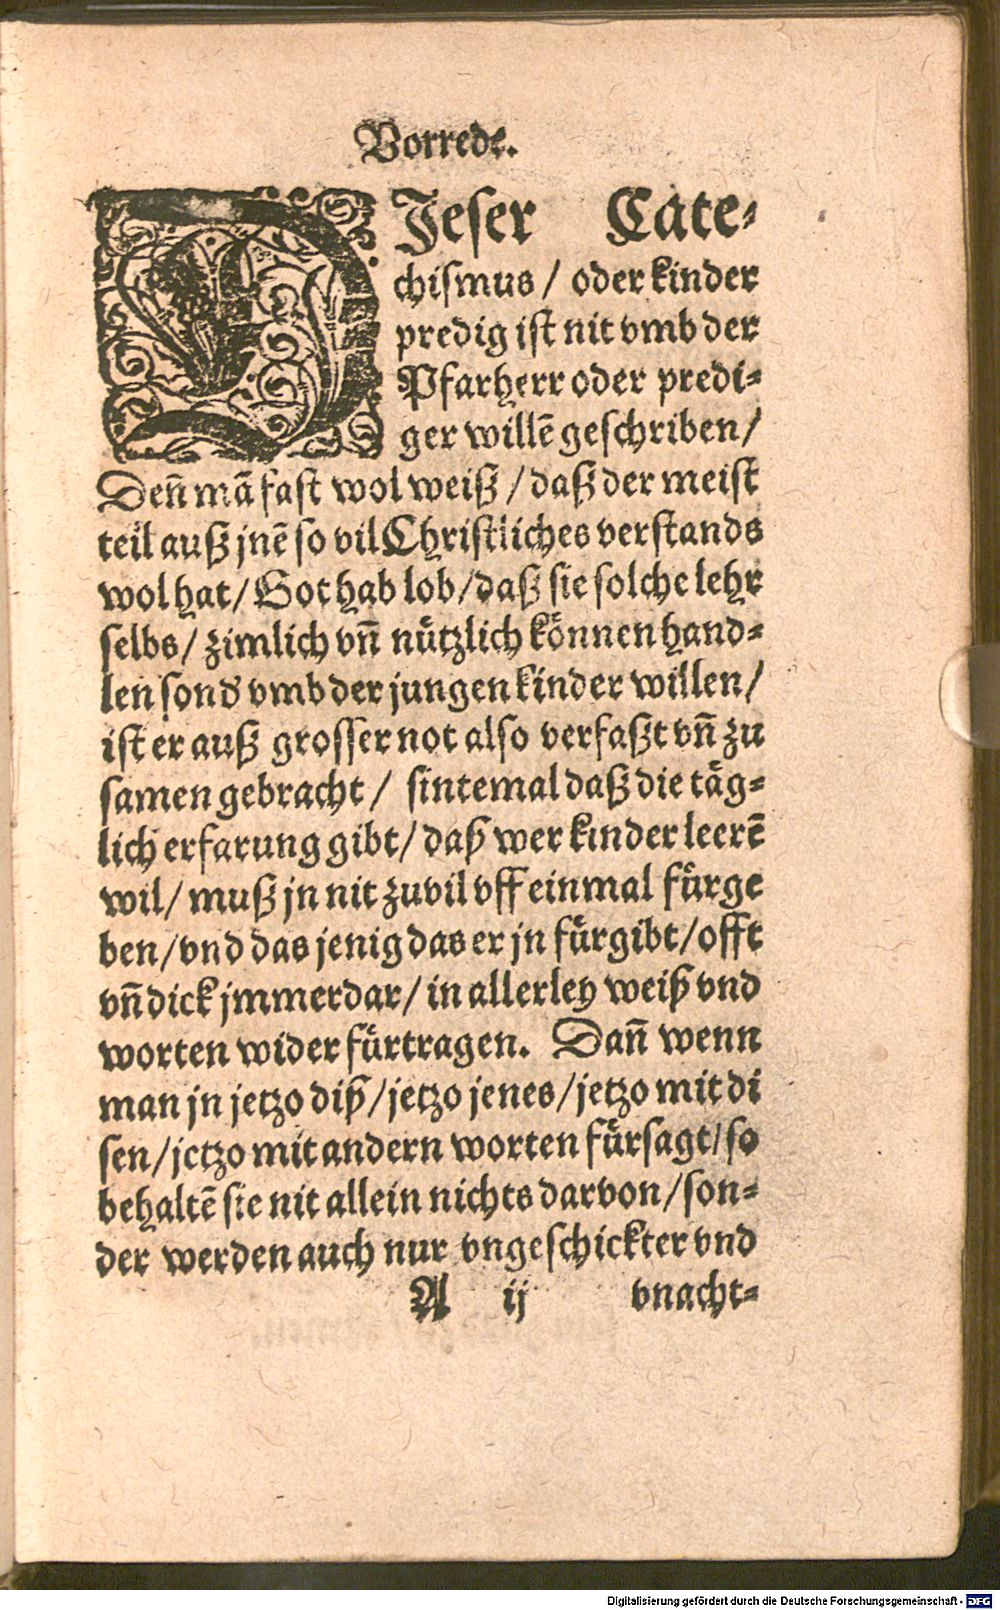 Vorrede.
DIeser Cate⸗
chismus / oder kinder
predig ist nit vmb der
Pfarherr oder predi⸗
ger willē geschriben /
Den̄ mā fast wol weiß / daß der meist
teil auß jnē so vil Christliches verstands
wol hat / Got hab lob / daß sie solche lehr
selbs / zimlich vn̄ nuͤtzlich koͤnnen hand⸗
len sond' vmb der jungen kinder willen /
ist er auß grosser not also verfaßt vn̄ zu
samen gebracht / sintemal daß die taͤg⸗
lich erfarung gibt / daß wer kinder leerē
wil / muß jn nit zuvil vff einmal fuͤrge
ben / vnd das jenig das er jn fuͤrgibt / offt
vn̄ dick jmmerdar / in allerley weiß vnd
worten wider fuͤrtragen. Dan̄ wenn
man jn jetzo diß / jetzo jenes / jetzo mit di
sen / jetzo mit andern worten fuͤrsagt / so
behaltē sie nit allein nichts darvon / son⸗
der werden auch nur vngeschickter vnd
A ij vnacht⸗
Digitalisierung gefördert durch die Deutsche Forschungsgemeinschaft - DFG